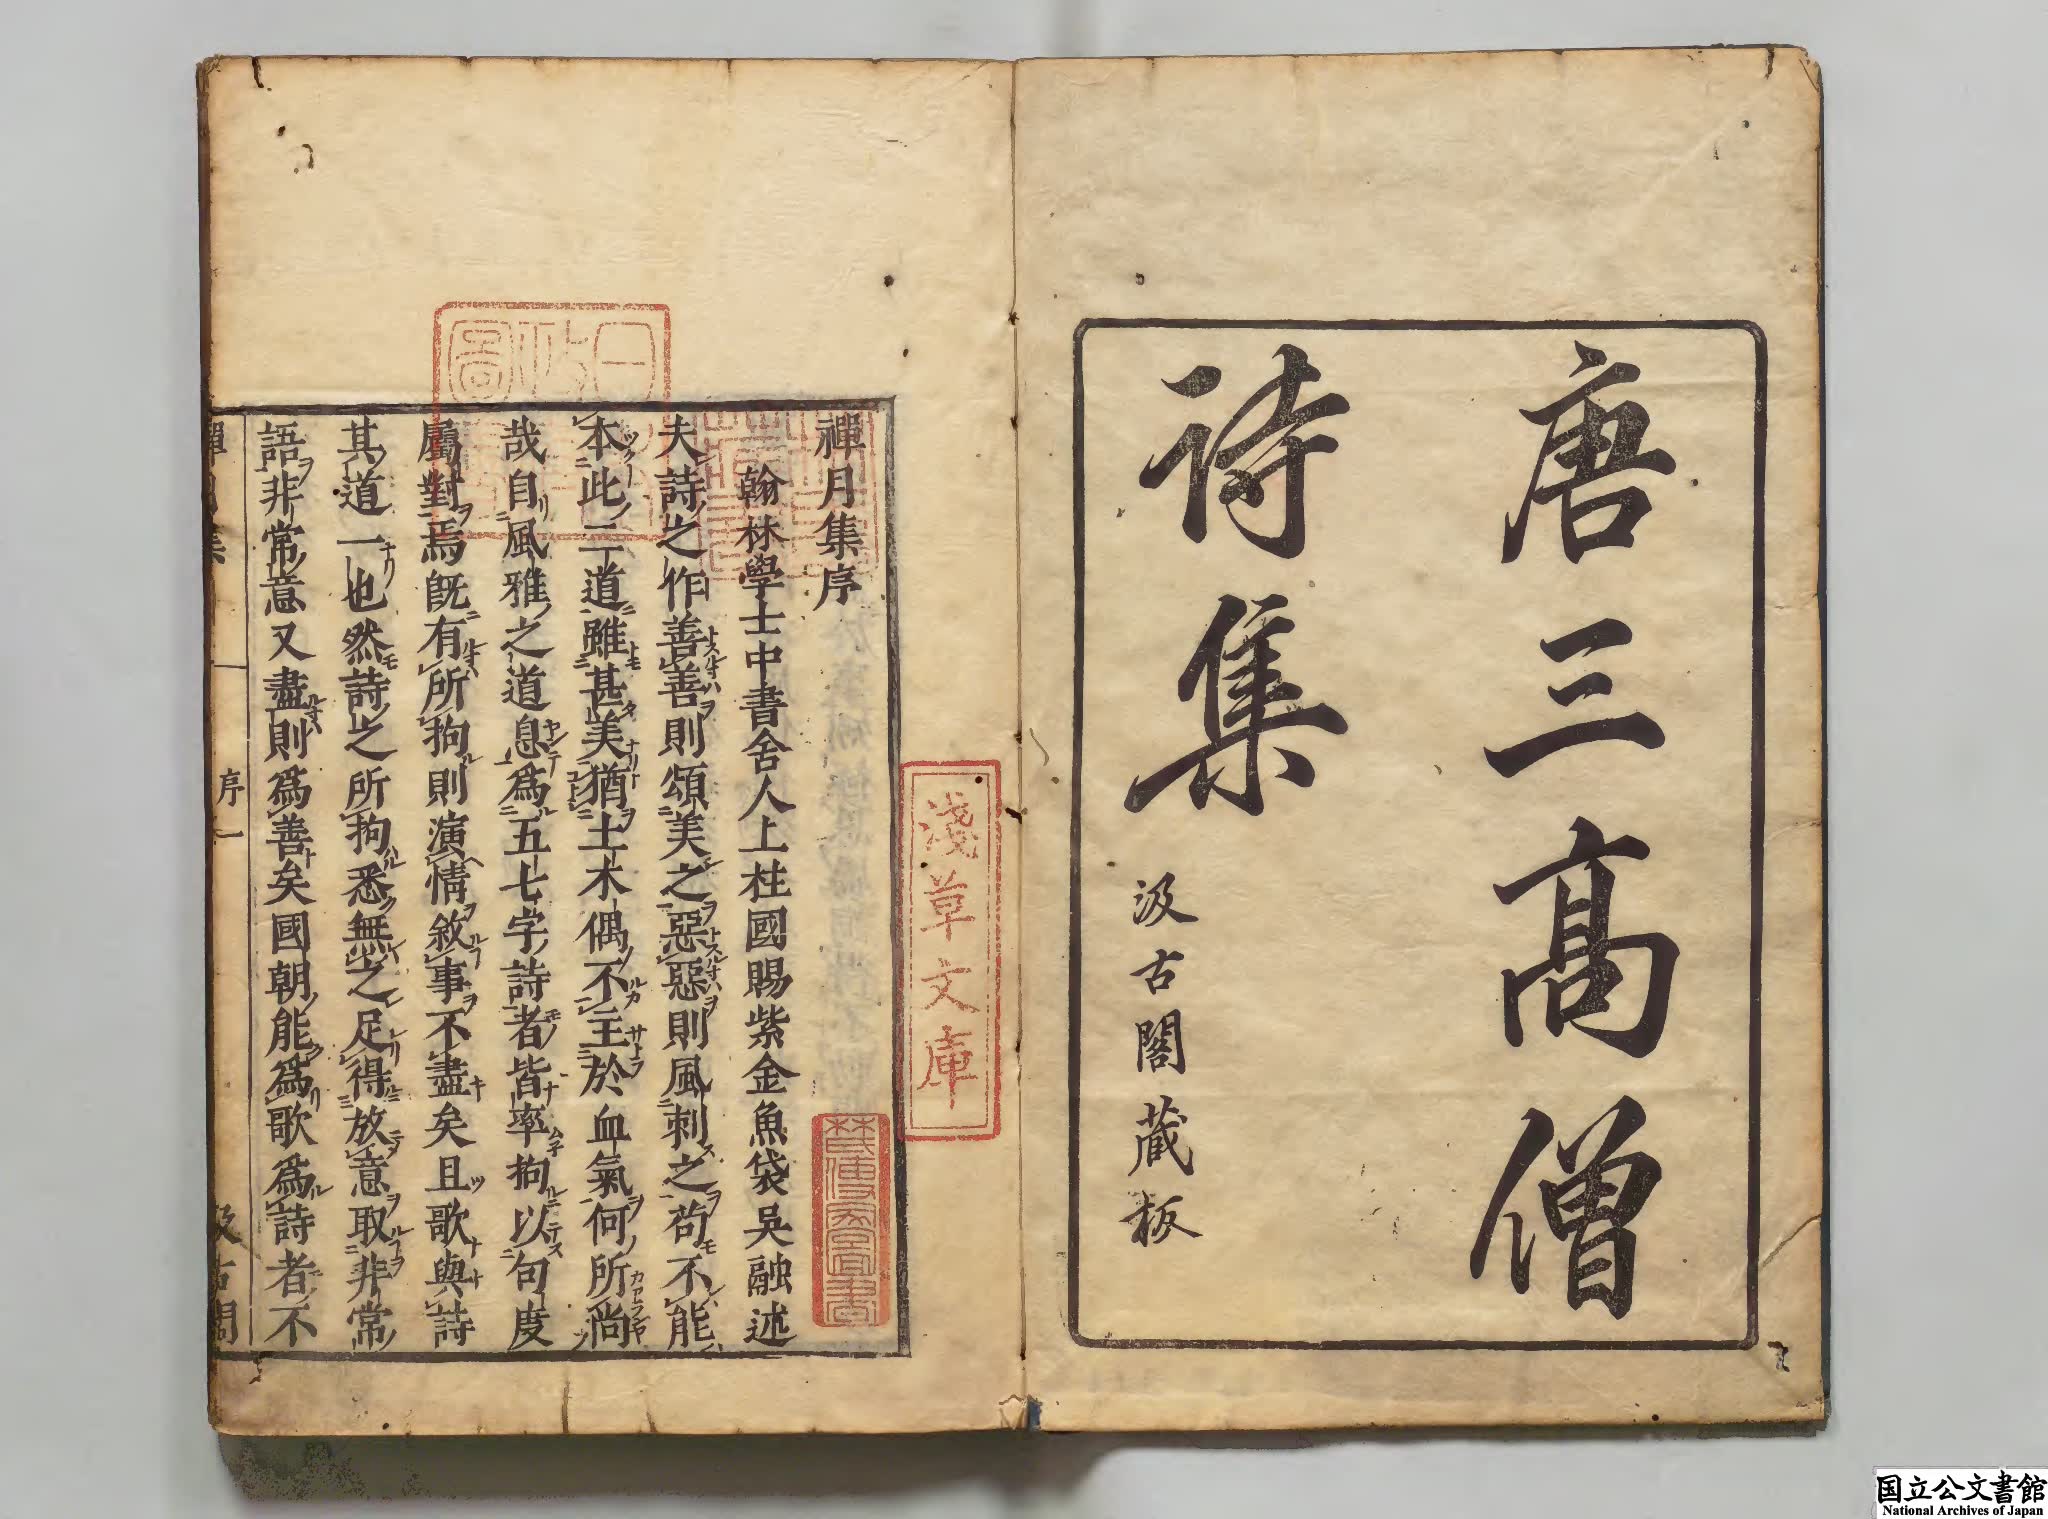 唐三高僧
詩集
汲古閣蔵板
禪月集序
翰林學士中書舍人上柱國賜紫金魚袋吳融述
夫詩之作善善則頌美之惡惡則風刺之苟不能
本此二道雖甚美猶土木偶不主於血氣何所尚
哉自風雅之道息爲五七字詩者皆率拘以句度
屬對焉旣有所拘則演情敘事不盡矣且歌與詩
其道一也然詩之所拘悉無之足得放意取非常
語非常意又盡則爲善矣國朝能爲歌爲詩者不
序
一
汲古閣
淺草文庫
国立公文書館
National Archives of Japan